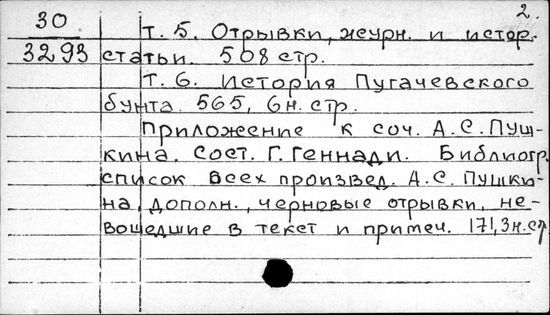 2.
30 т. 5. Отрывки, журн. и истор.
3293 статьи. 508 стр.
т. 6. История Пугачевского
бунта. 565, 6 н. стр.
Приложение к соч. А.С. Пуш-
кина. Сост. Г. Геннади. Библиогр.
список всех произвед. А.С. Пушки-
на, дополн., черновые отрывки, не-
вошедшие в текст и примеч. 171, 3 н. ст